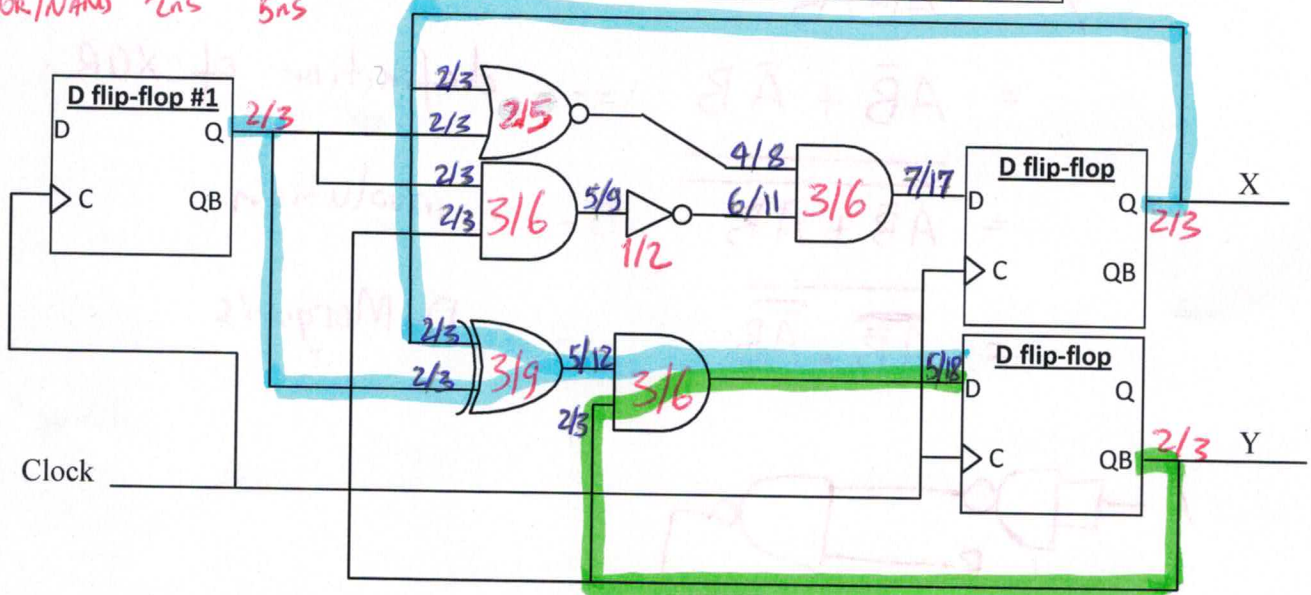 OR/NAND 2ns 5ns
D flip-flop #1
D Q
C QB
2/3
2/3
2/3
2/5
2/3
2/3
3/6
5/9
1/2
4/8
6/11
3/6
7/17
D flip-flop
D Q
C QB
2/3
X
2/3
2/3
3/9
5/12
2/3
3/6
5/18
D flip-flop
D Q
C QB
2/3
Y
Clock